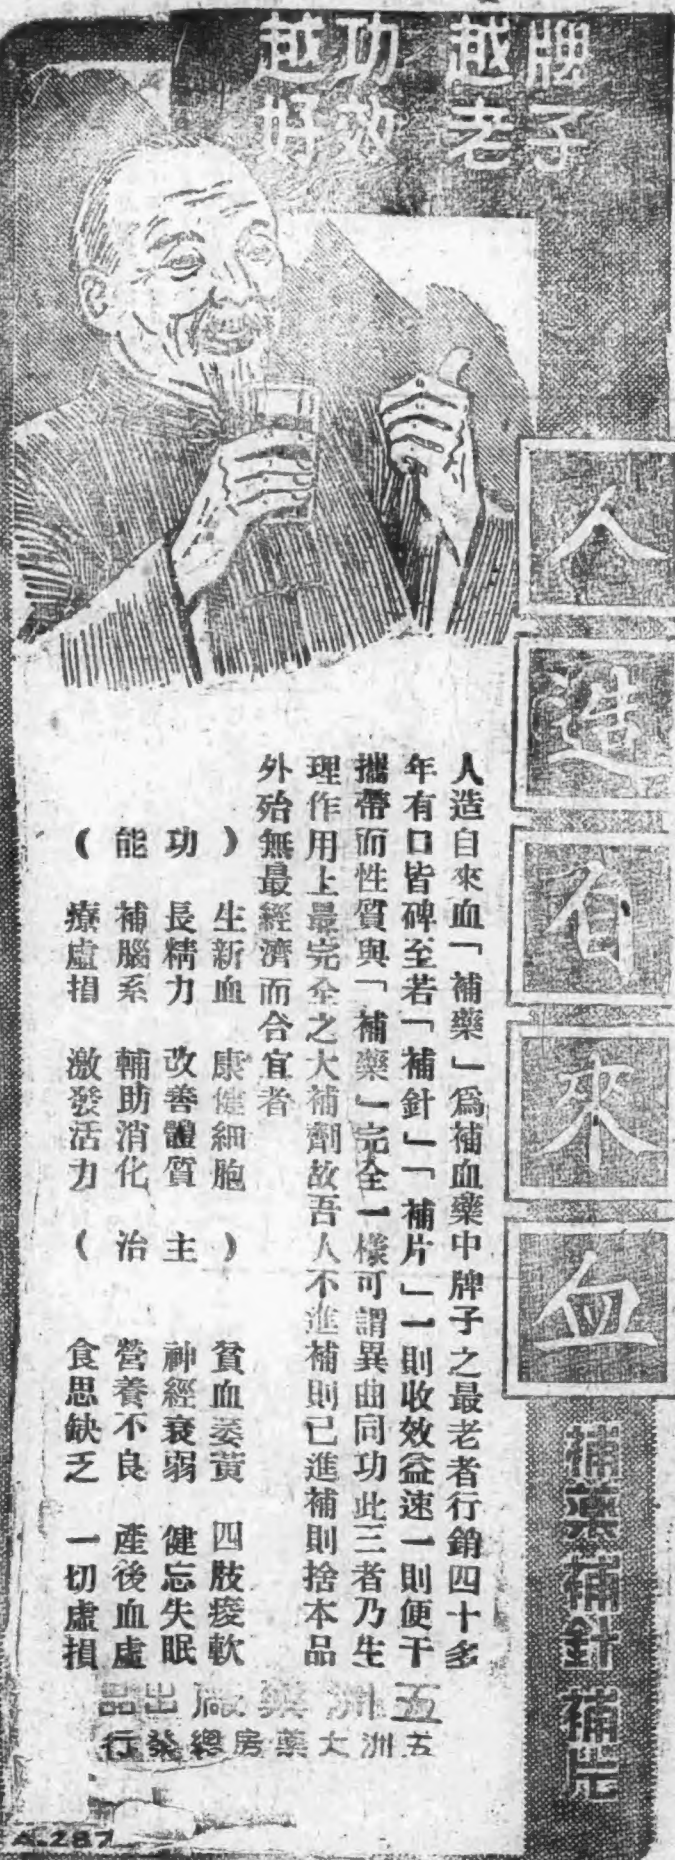 牌子
越老
功效
越好
人造自來血
補藥補針補片
人造自來血「補藥」爲補血藥中牌子之最老者行銷四十多
年有口皆碑至若「補針」「補片」一則收效益速一則便于
攜帶而性質與「補藥」完全一樣可謂異曲同功此三者乃生
理作用上最完全之大補劑故吾人不進補則已進補則捨本品
外殆無最經濟而合宜者
(功能)
生新血 康健細胞
長精力 改善體質
補腦系 輔助消化
療虛損 激發活力
(主治)
貧血萎黃 四肢痠軟
神經衰弱 健忘失眠
營養不良 產後血虛
食思缺乏 一切虛損
五洲藥廠出品
五洲大藥房總發行
A-287